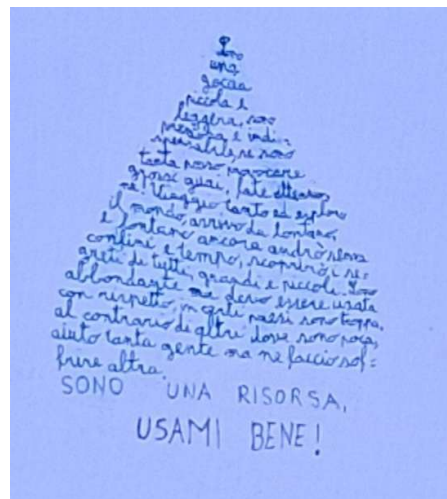 Sono
una
goccia
piccola e
leggera, sono
preziosa, e indi-
spensabile, se sono
tanta posso provocare
grossi guai, fate attenzio-
ne! Viaggio tanto ed esploro
il mondo, arrivo da lontano,
e lontano ancora andrò senza
confini e tempo, scoprirò i se-
greti di tutti, grandi e piccoli. Sono
abbondante ma devo essere usata
con rispetto, in certi paesi sono troppa,
al contrario di altri dove sono poca,
aiuto tanta gente ma ne faccio sof=
frire altra.
SONO UNA RISORSA,
USAMI BENE!